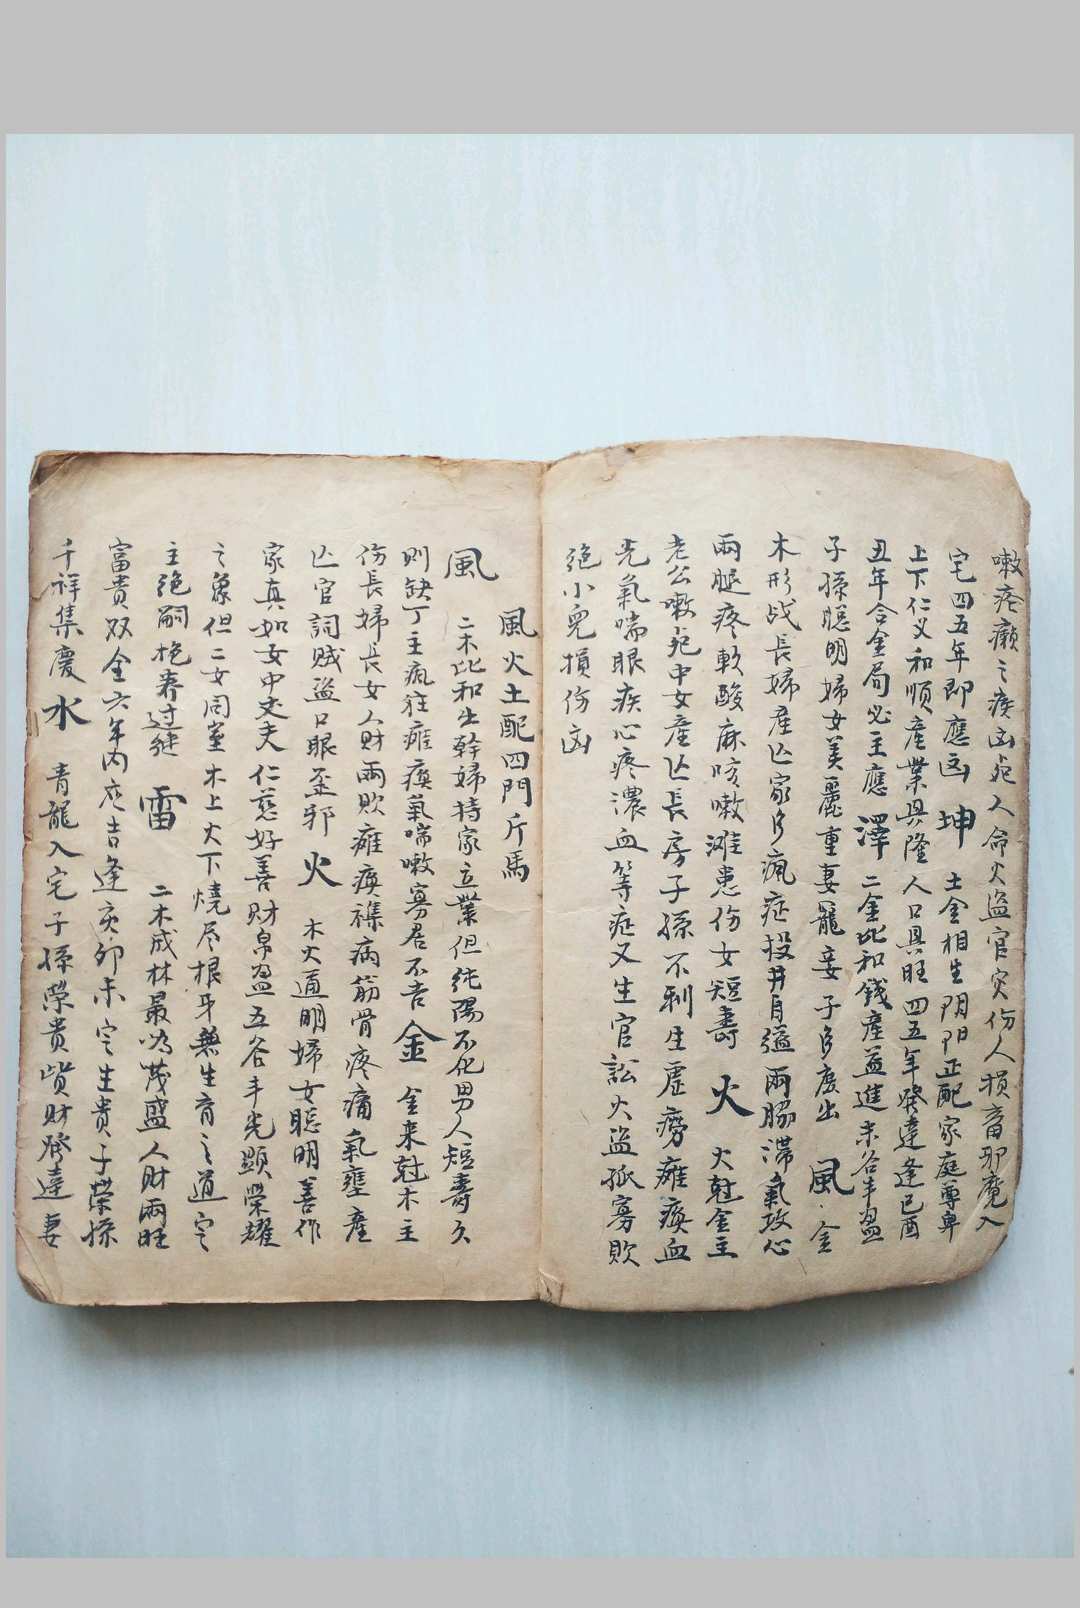 嗽瘧癩之疾凶死人命火盜官灾伤人損畜邪魔入
宅四五年即應凶 坤 土金相生阴阳正配家庭尊卑
上下仁义和順產業興隆人口具旺四五年發達逢巳酉
丑年合金局必主應 澤 二金比和錢產益進末谷丰盈
子孫聪明婦女美麗重妻寵妾子多庶出 風 金
木形战長婦產亾家多瘋症投井自縊兩脇滞氣攻心
兩腿疼軟酸麻咳嗽滩患伤女短壽 火 火尅金主
老公嗽死中女產亾長房子孫不利生虛癆瘫痪血
光氣喘眼疾心疼濃血等症又生官訟火盜孤寡敗
絕小児損伤凶
風火土配四門斤馬
風 二木比和生幹婦持家立業但純陽不化男人短壽久
則缺丁主瘋狂瘫痪氣喘嗽寡居不吉 金 金来尅木主
伤長婦長女人財兩敗瘫痪襍病筋骨疼痛氣壅產
亾官詞賊盜口眼歪邪 火 木火通明婦女聪明善作
家真如女中丈夫仁慈好善財帛盈五谷丰光顯榮耀
之象但二女同室木上火下燒尽根身無生育之道定
主絕嗣抱養过継 雷 二木成林最為茂盛人財兩旺
富貴双全六年内應吉逢亥卯未定生貴子榮孫
千祥集慶 水 青龍入宅子孫榮貴貲財發達妻